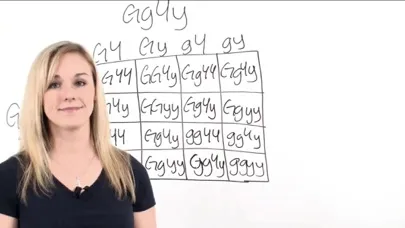 GgYy
GY Gy gY gy
GYY GGYy GgYY GgYy
GYy GGyy GgYy Ggyy
YY GgYy ggYY ggYy
Ggyy ggYy ggyy